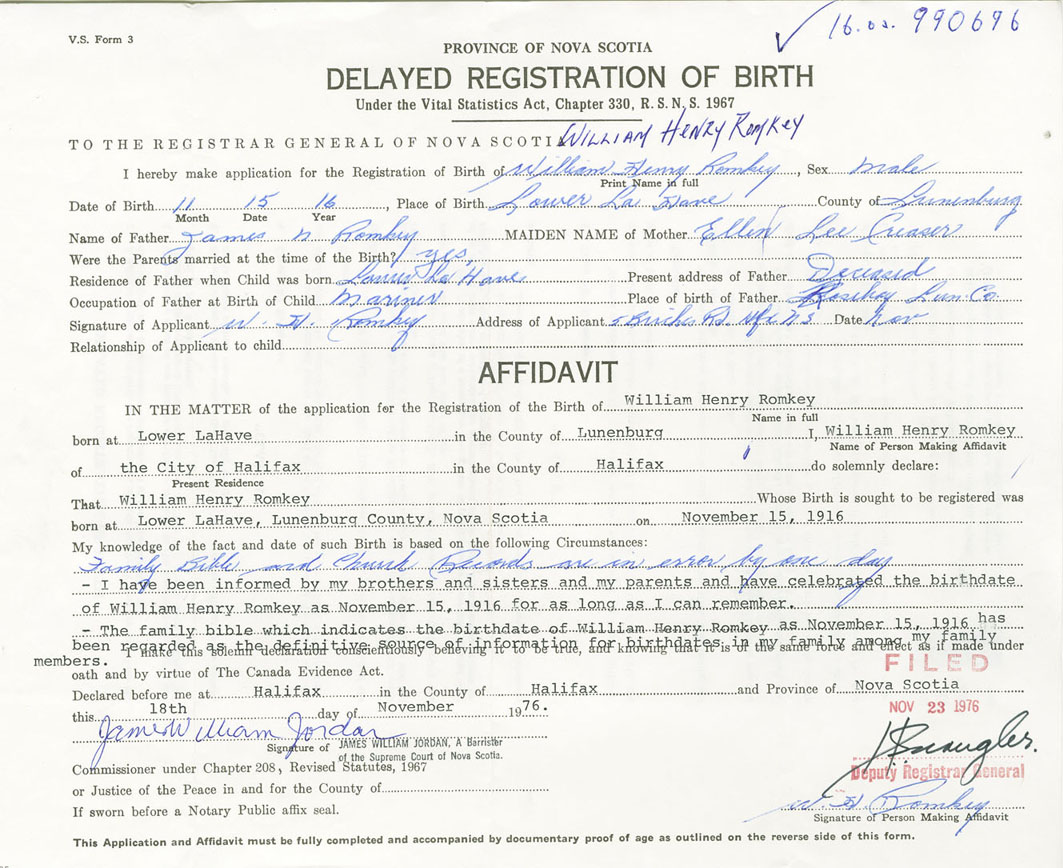 16.oo. 990696
V.S. Form 3
PROVINCE OF NOVA SCOTIA
DELAYED REGISTRATION OF BIRTH
Under the Vital Statistics Act, Chapter 330, R.S.N.S. 1967
TO THE REGISTRAR GENERAL OF NOVA SCOTIA William Henry Romkey
I hereby make application for the Registration of Birth of William Henry Romkey, Sex Male
Print Name in full
Date of Birth 11 15 16, Place of Birth Lower La Have County of Lunenburg
Month Date Year
Name of Father James N Romkey MAIDEN NAME of Mother Ellen Lee Creaser
Were the Parents married at the time of the Birth? yes,
Residence of Father when Child was born La Have Present address of Father Deceased
Occupation of Father at Birth of Child Mariner Place of birth of Father Lun. Co.
Signature of Applicant W. H. Romkey Address of Applicant 5 Birches Rd Hfx NS Date Nov
Relationship of Applicant to child
AFFIDAVIT
IN THE MATTER of the application for the Registration of the Birth of William Henry Romkey
Name in full
born at Lower LaHave in the County of Lunenburg I, William Henry Romkey
Name of Person Making Affidavit
of the City of Halifax in the County of Halifax do solemnly declare:
Present Residence
That William Henry Romkey Whose Birth is sought to be registered was
born at Lower LaHave, Lunenburg County, Nova Scotia on November 15, 1916
My knowledge of the fact and date of such Birth is based on the following Circumstances:
Family Bible and Church Records are in error by one day
- I have been informed by my brothers and sisters and my parents and have celebrated the birthdate
of William Henry Romkey as November 15, 1916 for as long as I can remember.
- The family bible which indicates the birthdate of William Henry Romkey as November 15, 1916 has
been regarded as the definitive source of information for birthdates in my family among my family
members.
I make this solemn declaration conscientiously believing it to be true, and knowing that it is of the same force and effect as if made under
oath and by virtue of The Canada Evidence Act.
FILED
Declared before me at Halifax in the County of Halifax and Province of Nova Scotia
this 18th day of November 1976.
NOV 23 1976
James William Jordan
Signature of JAMES WILLIAM JORDAN, A Barrister
of the Supreme Court of Nova Scotia.
Commissioner under Chapter 208, Revised Statutes, 1967
Deputy Registrar General
or Justice of the Peace in and for the County of
W. H. Romkey
If sworn before a Notary Public affix seal.
Signature of Person Making Affidavit
This Application and Affidavit must be fully completed and accompanied by documentary proof of age as outlined on the reverse side of this form.